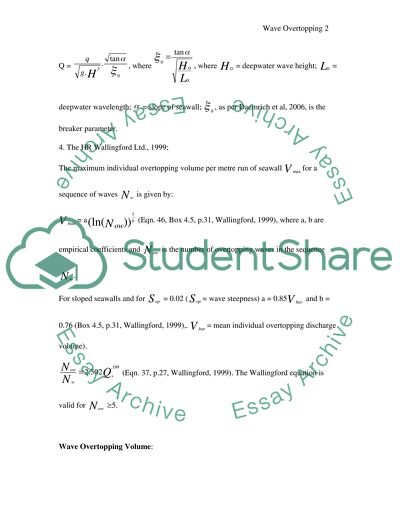 Wave Overtopping 2
Q = q/√(g.H³) · √(tan α)/ξ₀, where ξ₀ = tan α/√(H₀/L₀), where H₀ = deepwater wave height; L₀ =
deepwater wavelength; α = slope of seawall; ξ₀, as per Daemrich et al, 2006, is the
breaker parameter.
4. The HR Wallingford Ltd., 1999;
The maximum individual overtopping volume per metre run of seawall V max for a
sequence of waves N w is given by:
= a(ln(N ow)) (Eqn. 46, Box 4.5, p.31, Wallingford, 1999), where a, b are
empirical coefficients and is the number of overtopping waves in the sequence
StudentShare
Essays for Students
For sloped seawalls and for S op = 0.02 (S op = wave steepness) a = 0.85 V bar and b =
0.76 (Box 4.5, p.31, Wallingford, 1999),. V bar = mean individual overtopping discharge
volume).
N ow/N w = Q (Eqn. 37, p.27, Wallingford, 1999). The Wallingford equation is
valid for N ow ≥5.
Wave Overtopping Volume: